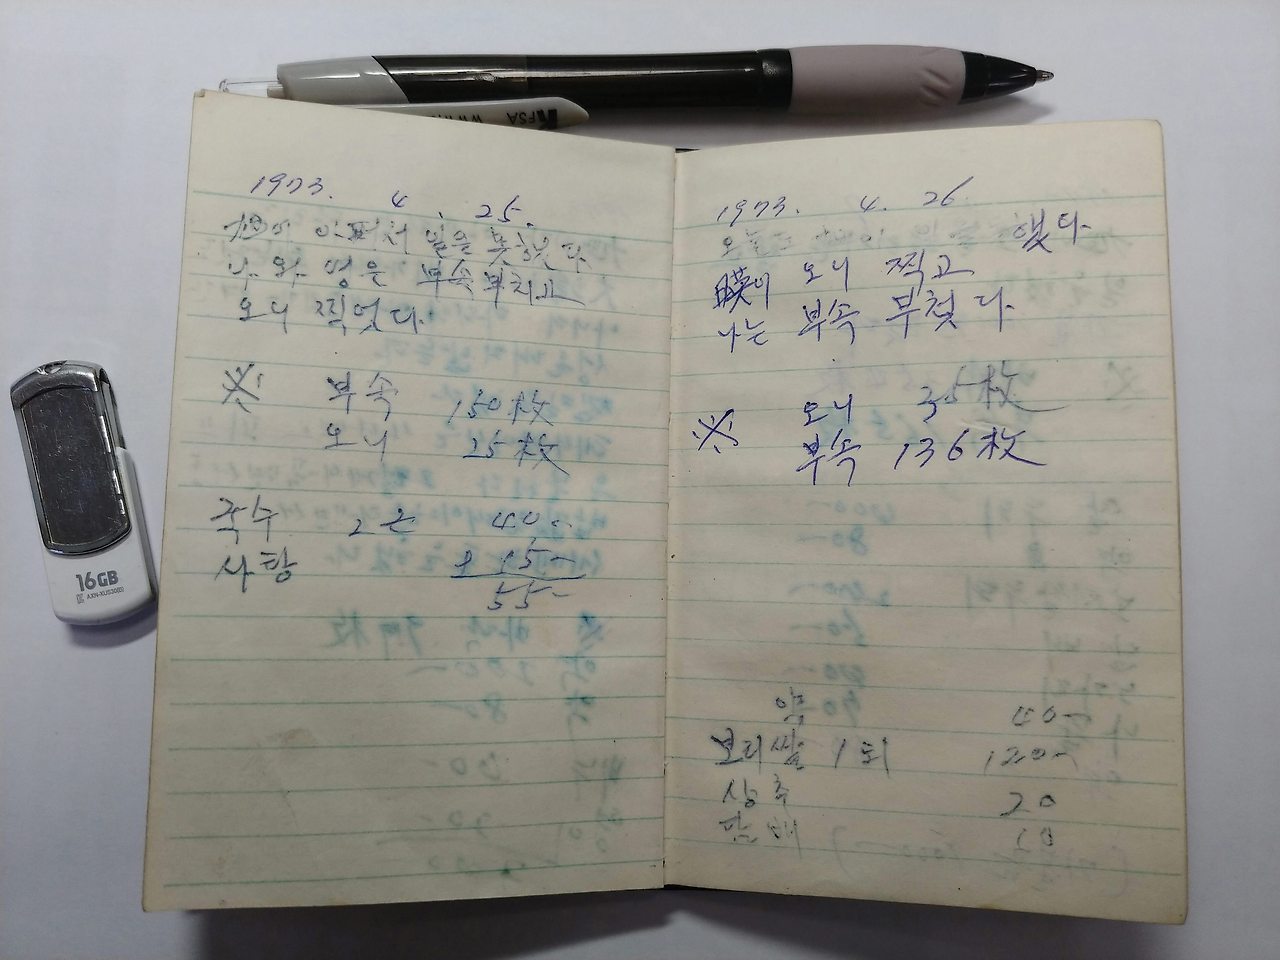 1973. 4. 25.
아퍼서 일을 못했다
나와 영은 부속 부치고
오니 찍엇다.
※ 부속 150枚
오니 25枚
국수 2근 40-
사탕 15-
55-
1973. 4. 26.
오늘도 일 했다
暎이 오니 찍고
나는 부속 부쳣다
※ 오니 35枚
부속 136枚
약 40-
보리쌀 1되 120-
상추 20
담배 10
16GB
AXN-XUS30(6S)
FSA